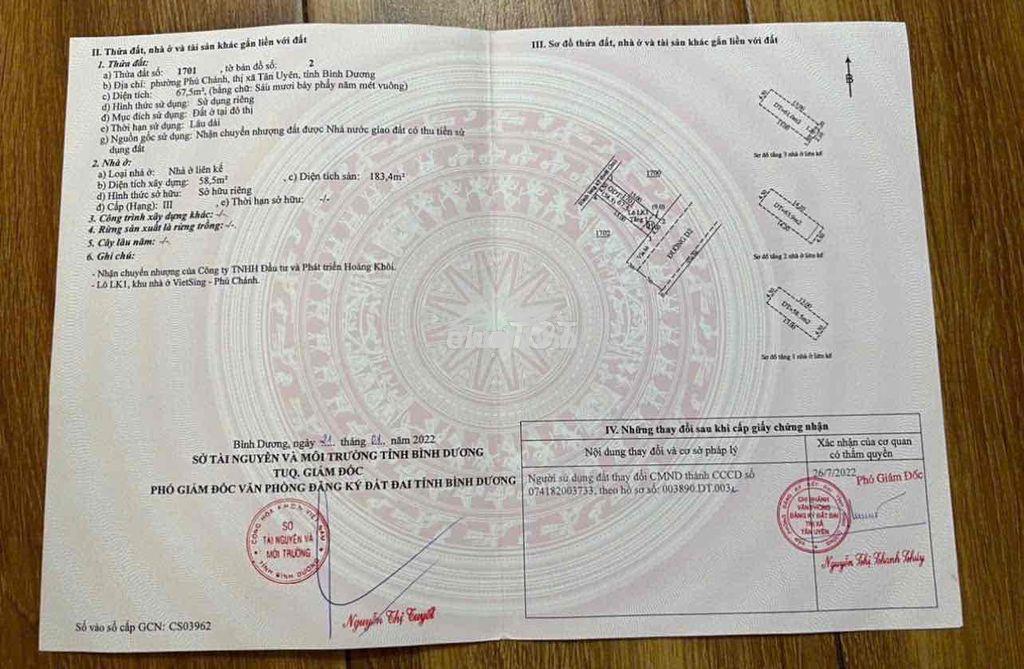 II. Thửa đất, nhà ở và tài sản khác gắn liền với đất
1. Thửa đất:
a) Thửa đất số: 1701 , tờ bản đồ số: 2
b) Địa chỉ: phường Phú Chánh, thị xã Tân Uyên, tỉnh Bình Dương
c) Diện tích: 67,5m², (bằng chữ: Sáu mươi bảy phẩy năm mét vuông)
d) Hình thức sử dụng: Sử dụng riêng
đ) Mục đích sử dụng: Đất ở tại đô thị
e) Thời hạn sử dụng: Lâu dài
g) Nguồn gốc sử dụng: Nhận chuyển nhượng đất được Nhà nước giao đất có thu tiền sử
dụng đất
2. Nhà ở:
a) Loại nhà ở: Nhà ở liên kế
b) Diện tích xây dựng: 58,5m² , c) Diện tích sàn: 183,4m²
d) Hình thức sở hữu: Sở hữu riêng
đ) Cấp (Hạng): III , e) Thời hạn sở hữu: -/-
3. Công trình xây dựng khác: -/-
4. Rừng sản xuất là rừng trồng: -/-
5. Cây lâu năm: -/-
6. Ghi chú:
- Nhận chuyển nhượng của Công ty TNHH Đầu tư và Phát triển Hoàng Khôi.
- Lô LK1, khu nhà ở VietSing - Phú Chánh.
Bình Dương, ngày 21 tháng 01 năm 2022
SỞ TÀI NGUYÊN VÀ MÔI TRƯỜNG TỈNH BÌNH DƯƠNG
TUQ. GIÁM ĐỐC
PHÓ GIÁM ĐỐC VĂN PHÒNG ĐĂNG KÝ ĐẤT ĐAI TỈNH BÌNH DƯƠNG
CỘNG HÒA X.H.C.N VIỆT NAM
SỞ
TÀI NGUYÊN VÀ
MÔI TRƯỜNG
TỈNH BÌNH DƯƠNG
Nguyễn Thị Tuyết
Số vào sổ cấp GCN: CS03962
chợTỐT
III. Sơ đồ thửa đất, nhà ở và tài sản khác gắn liền với đất
B
1700
1702
Lô LK1
Tầng 1
ĐƯỜNG D2
15.00
DT=61.0m2
Sơ đồ tầng 3 nhà ở liên kế
14.20
DT=63.9m2
14.20
Sơ đồ tầng 2 nhà ở liên kế
4.50
13.00
DT=58.5m2
13.00
4.50
Sơ đồ tầng 1 nhà ở liên kế
IV. Những thay đổi sau khi cấp giấy chứng nhận
Nội dung thay đổi và cơ sở pháp lý
Xác nhận của cơ quan
có thẩm quyền
Người sử dụng đất thay đổi CMND thành CCCD số
074182003733, theo hồ sơ số: 003890.DT.003
26/7/2022
Phó Giám Đốc
CHI NHÁNH
VĂN PHÒNG
ĐĂNG KÝ ĐẤT ĐAI
THỊ XÃ
TÂN UYÊN
Nguyễn Thị Thanh Thúy